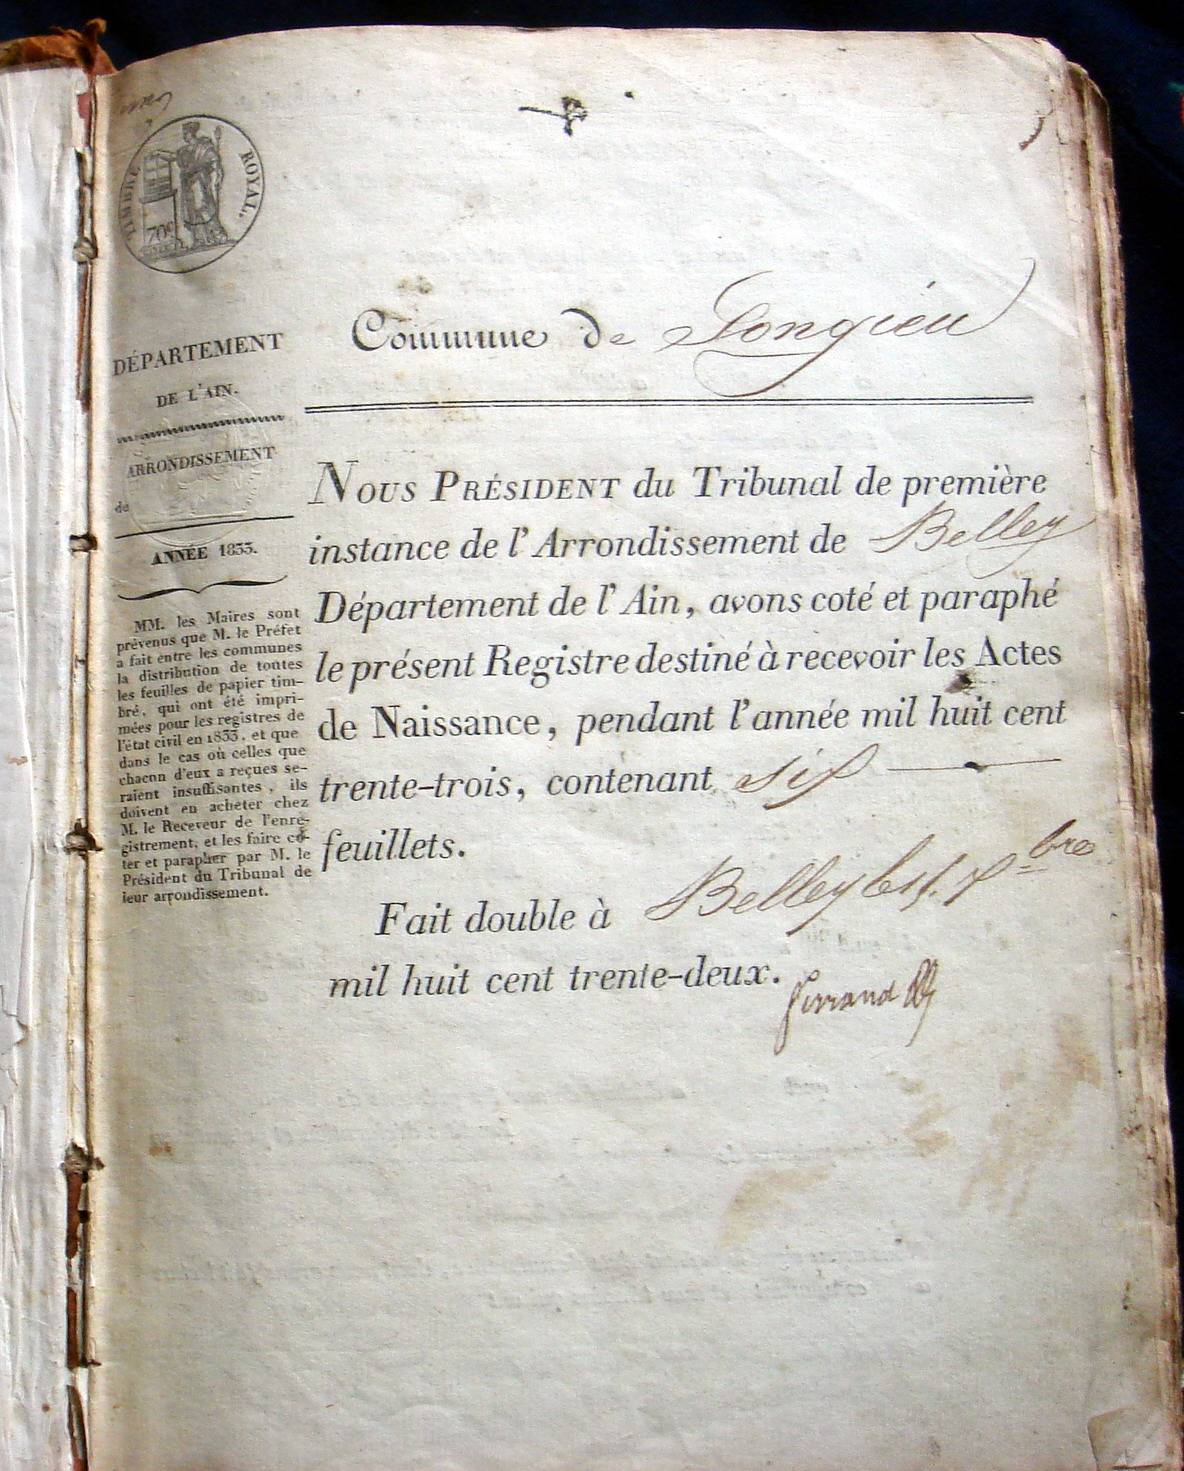 TIMBRE ROYAL.
70c
Commune de Songieu
DÉPARTEMENT
DE L'AIN.
ARRONDISSEMENT
de
ANNÉE 1833.
MM. les Maires sont
prévenus que M. le Préfet
a fait entre les communes
la distribution de toutes
les feuilles de papier tim-
bré, qui ont été impri-
mées pour les registres de
l'état civil en 1833, et que
dans le cas où celles que
chacun d'eux a reçues se-
raient insuffisantes, ils
doivent en acheter chez
M. le Receveur de l'enre-
gistrement, et les faire co-
ter et parapher par M. le
Président du Tribunal de
leur arrondissement.
NOUS PRÉSIDENT du Tribunal de première
instance de l'Arrondissement de Belley
Département de l'Ain, avons coté et paraphé
le présent Registre destiné à recevoir les Actes
de Naissance, pendant l'année mil huit cent
trente-trois, contenant six
feuillets.
Fait double à Belley le Xbre
mil huit cent trente-deux.